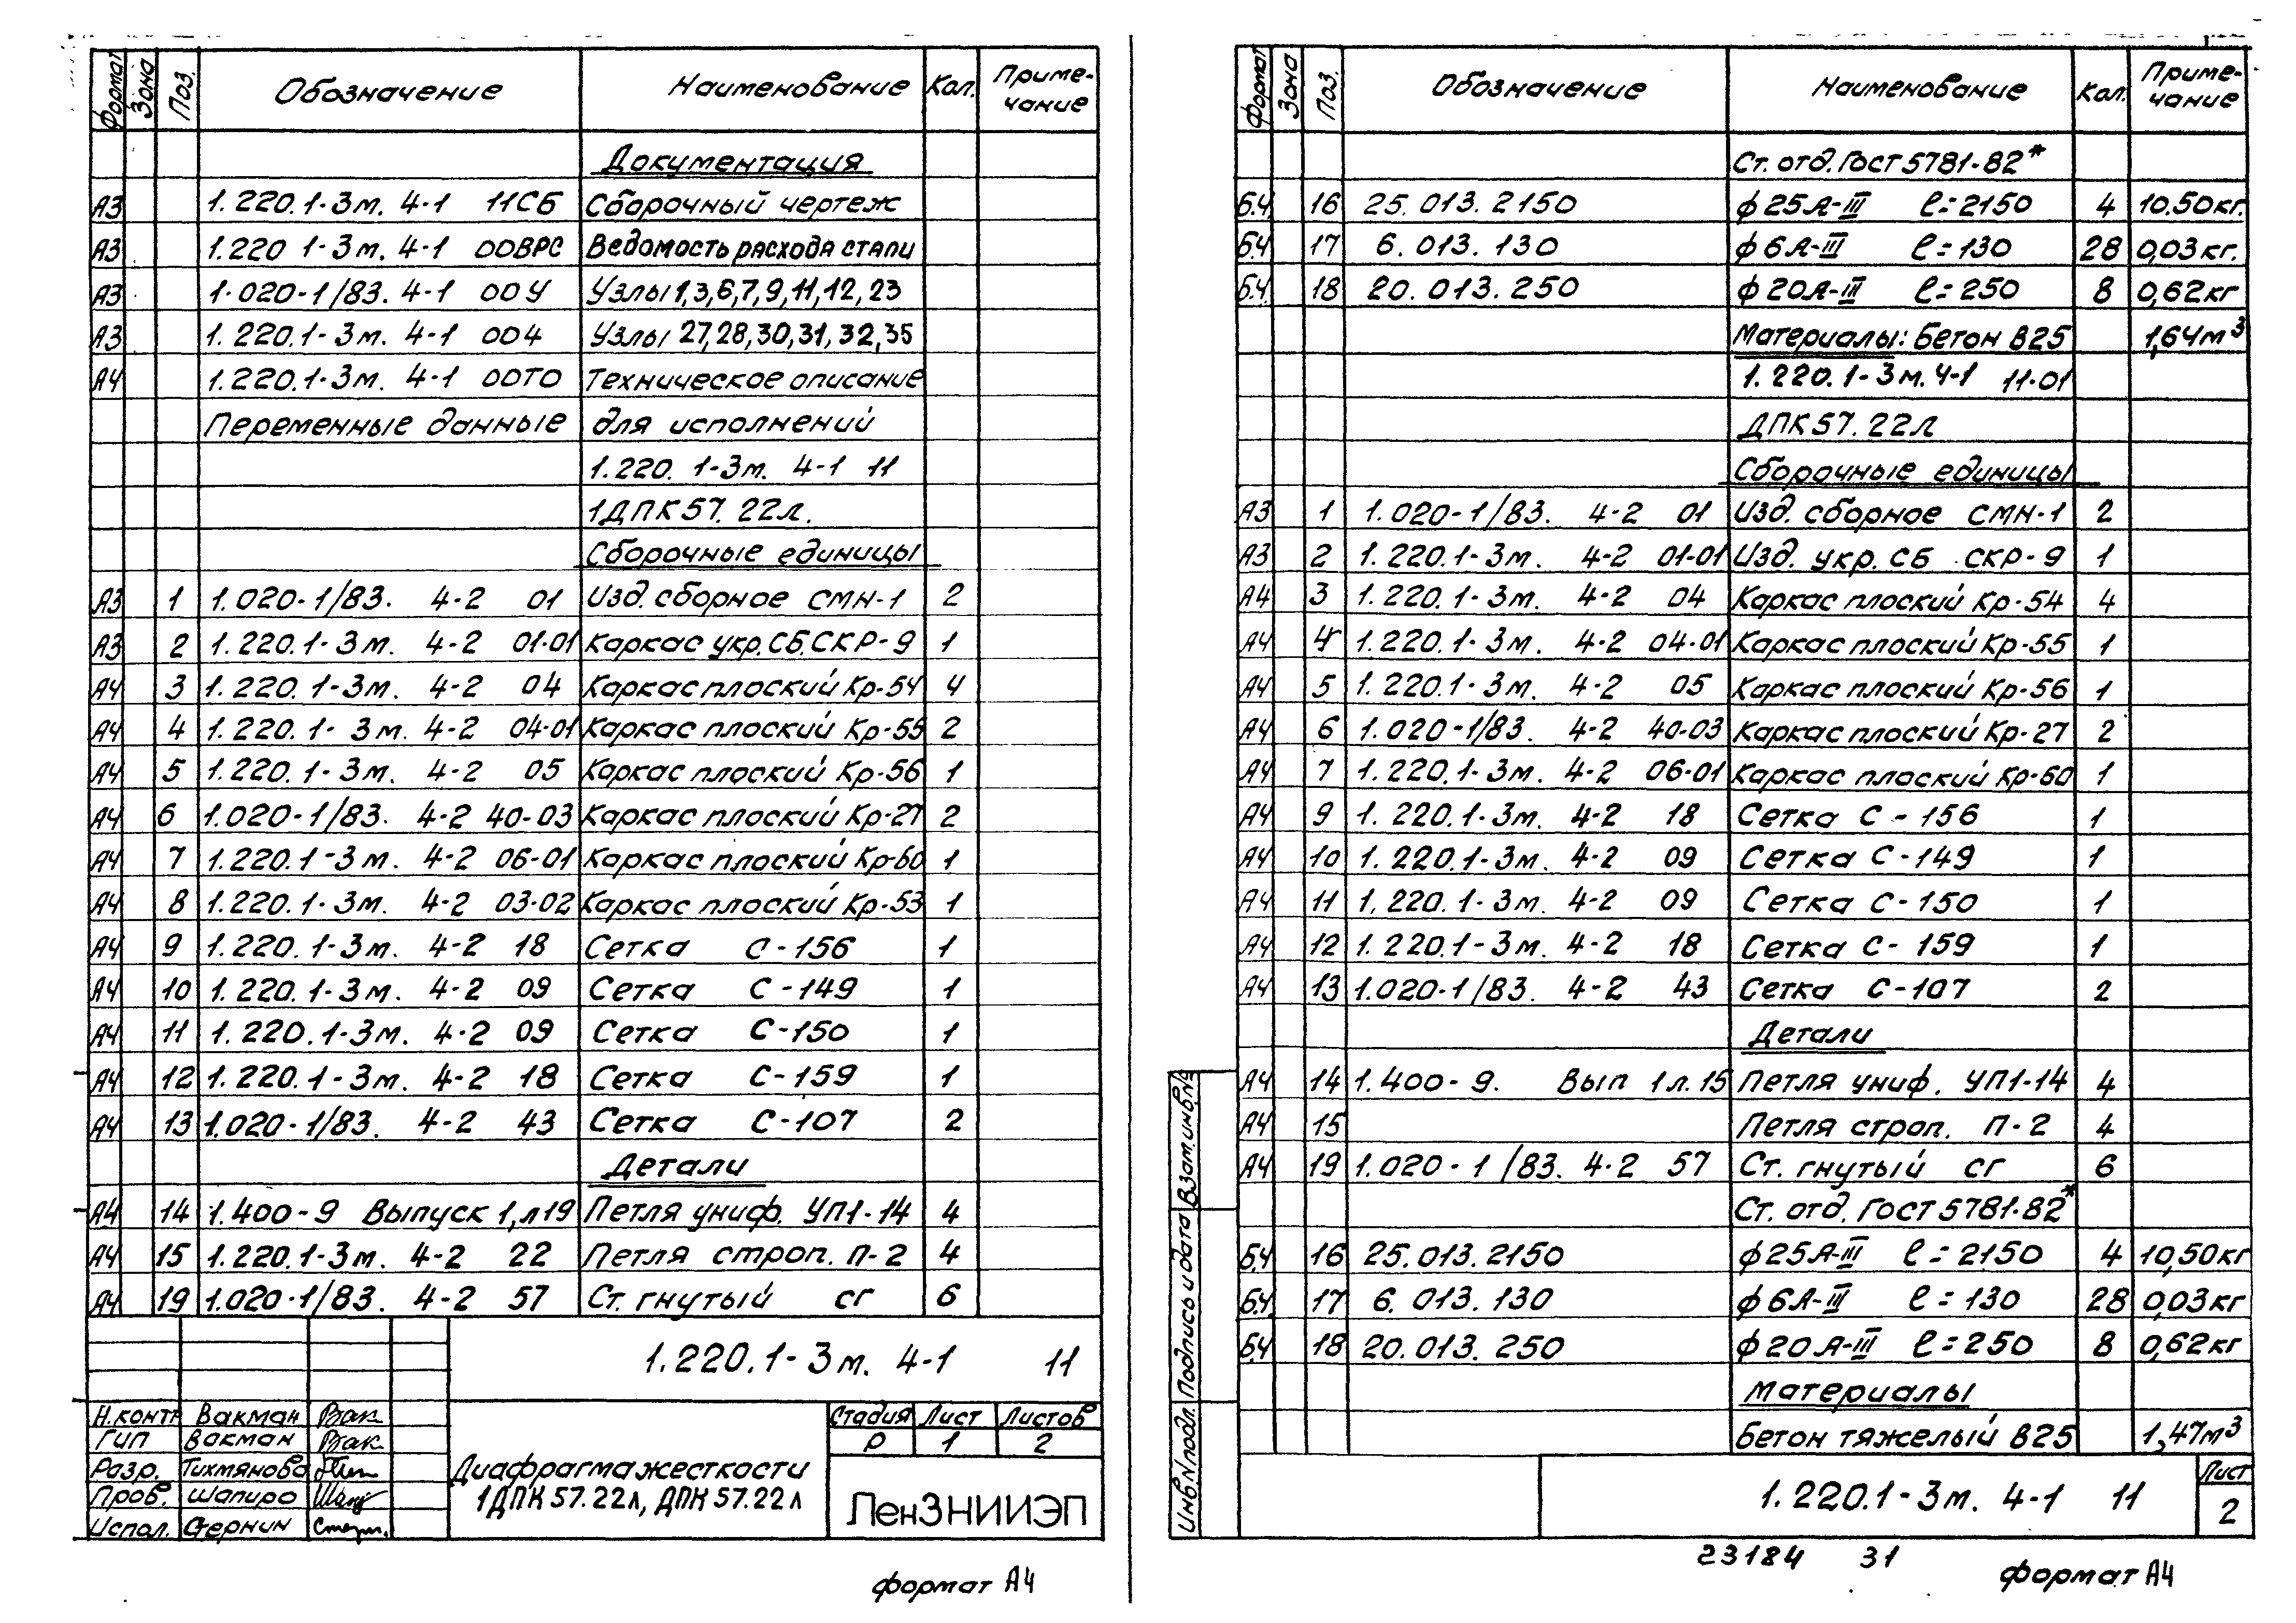 Формат Зона Поз. Обозначение Наименование Кол. Приме-
чание
Документация
А3 1.220.1-3м. 4-1 11СБ Сборочный чертеж
А3 1.220 1-3м. 4-1 00ВРС Ведомость расхода стали
А3 1.020-1/83. 4-1 00У Узлы 1,3,6,7,9,11,12,23
А3 1.220.1-3м. 4-1 004 Узлы 27,28,30,31,32,35
А4 1.220.1-3м. 4-1 00ТО Техническое описание
Переменные данные для исполнений
1.220. 1-3м. 4-1 11
1ДПК57.22л.
Сборочные единицы
А3 1 1.020-1/83. 4-2 01 Изд. сборное СМН-1 2
А3 2 1.220.1-3м. 4-2 01-01 Каркас укр. СБ. СКР-9 1
А4 3 1.220.1-3м. 4-2 04 Каркас плоский Кр-54 4
А4 4 1.220.1-3м. 4-2 04-01 Каркас плоский Кр-55 2
А4 5 1.220.1-3м. 4-2 05 Каркас плоский Кр-56 1
А4 6 1.020-1/83. 4-2 40-03 Каркас плоский Кр-27 2
А4 7 1.220.1-3м. 4-2 06-01 Каркас плоский Кр-60 1
А4 8 1.220.1-3м. 4-2 03-02 Каркас плоский Кр-53 1
А4 9 1.220.1-3м. 4-2 18 Сетка С-156 1
А4 10 1.220.1-3м. 4-2 09 Сетка С-149 1
А4 11 1.220.1-3м. 4-2 09 Сетка С-150 1
А4 12 1.220.1-3м. 4-2 18 Сетка С-159 1
А4 13 1.020-1/83. 4-2 43 Сетка С-107 2
Детали
А4 14 1.400-9 Выпуск 1, л19 Петля униф. УП1-14 4
А4 15 1.220.1-3м. 4-2 22 Петля строп. П-2 4
А4 19 1.020-1/83. 4-2 57 Ст. гнутый СГ 6
1.220.1-3м. 4-1 11
Н.контр Вакман Вак
ГИП Вакман Вак
Разр. Тихмянова
Пров. Шапиро
Испол. Стернин
Диафрагма жесткости
1ДПК57.22л, ДПК57.22л
Стадия Лист Листов
Р 1 2
ЛенЗНИИЭП
формат А4
Формат Зона Поз. Обозначение Наименование Кол. Приме-
чание
Ст. отд. ГОСТ 5781-82*
Б.Ч 16 25.013.2150 ф25А-III ℓ=2150 4 10.50кг.
Б.Ч 17 6.013.130 ф6А-III ℓ=130 28 0,03кг.
Б.Ч 18 20.013.250 ф20А-III ℓ=250 8 0,62кг
Материалы: Бетон В25 1,64м³
1.220.1-3м.4-1 11-01
ДПК57.22л
Сборочные единицы
А3 1 1.020-1/83. 4-2 01 Изд. сборное СМН-1 2
А3 2 1.220.1-3м. 4-2 01-01 Изд. укр. СБ СКР-9 1
А4 3 1.220.1-3м. 4-2 04 Каркас плоский Кр-54 4
А4 4 1.220.1-3м. 4-2 04-01 Каркас плоский Кр-55 1
А4 5 1.220.1-3м. 4-2 05 Каркас плоский Кр-56 1
А4 6 1.020-1/83. 4-2 40-03 Каркас плоский Кр-27 2
А4 7 1.220.1-3м. 4-2 06-01 Каркас плоский Кр-60 1
А4 9 1.220.1-3м. 4-2 18 Сетка С-156 1
А4 10 1.220.1-3м. 4-2 09 Сетка С-149 1
А4 11 1.220.1-3м. 4-2 09 Сетка С-150 1
А4 12 1.220.1-3м. 4-2 18 Сетка С-159 1
А4 13 1.020-1/83. 4-2 43 Сетка С-107 2
Детали
А4 14 1.400-9. Вып 1 л.15 Петля униф. УП1-14 4
А4 15 Петля строп. П-2 4
А4 19 1.020-1/83. 4-2 57 Ст. гнутый СГ 6
Ст. отд. ГОСТ 5781-82*
Б.Ч 16 25.013.2150 ф25А-III ℓ=2150 4 10,50кг
Б.Ч 17 6.013.130 ф6А-III ℓ=130 28 0,03кг
Б.Ч 18 20.013.250 ф20А-III ℓ=250 8 0,62кг
Материалы
Бетон тяжелый В25 1,47м³
Инв.№подл. Подпись и дата Взам.инв.№
1.220.1-3м. 4-1 11
Лист
2
23184 31
формат А4